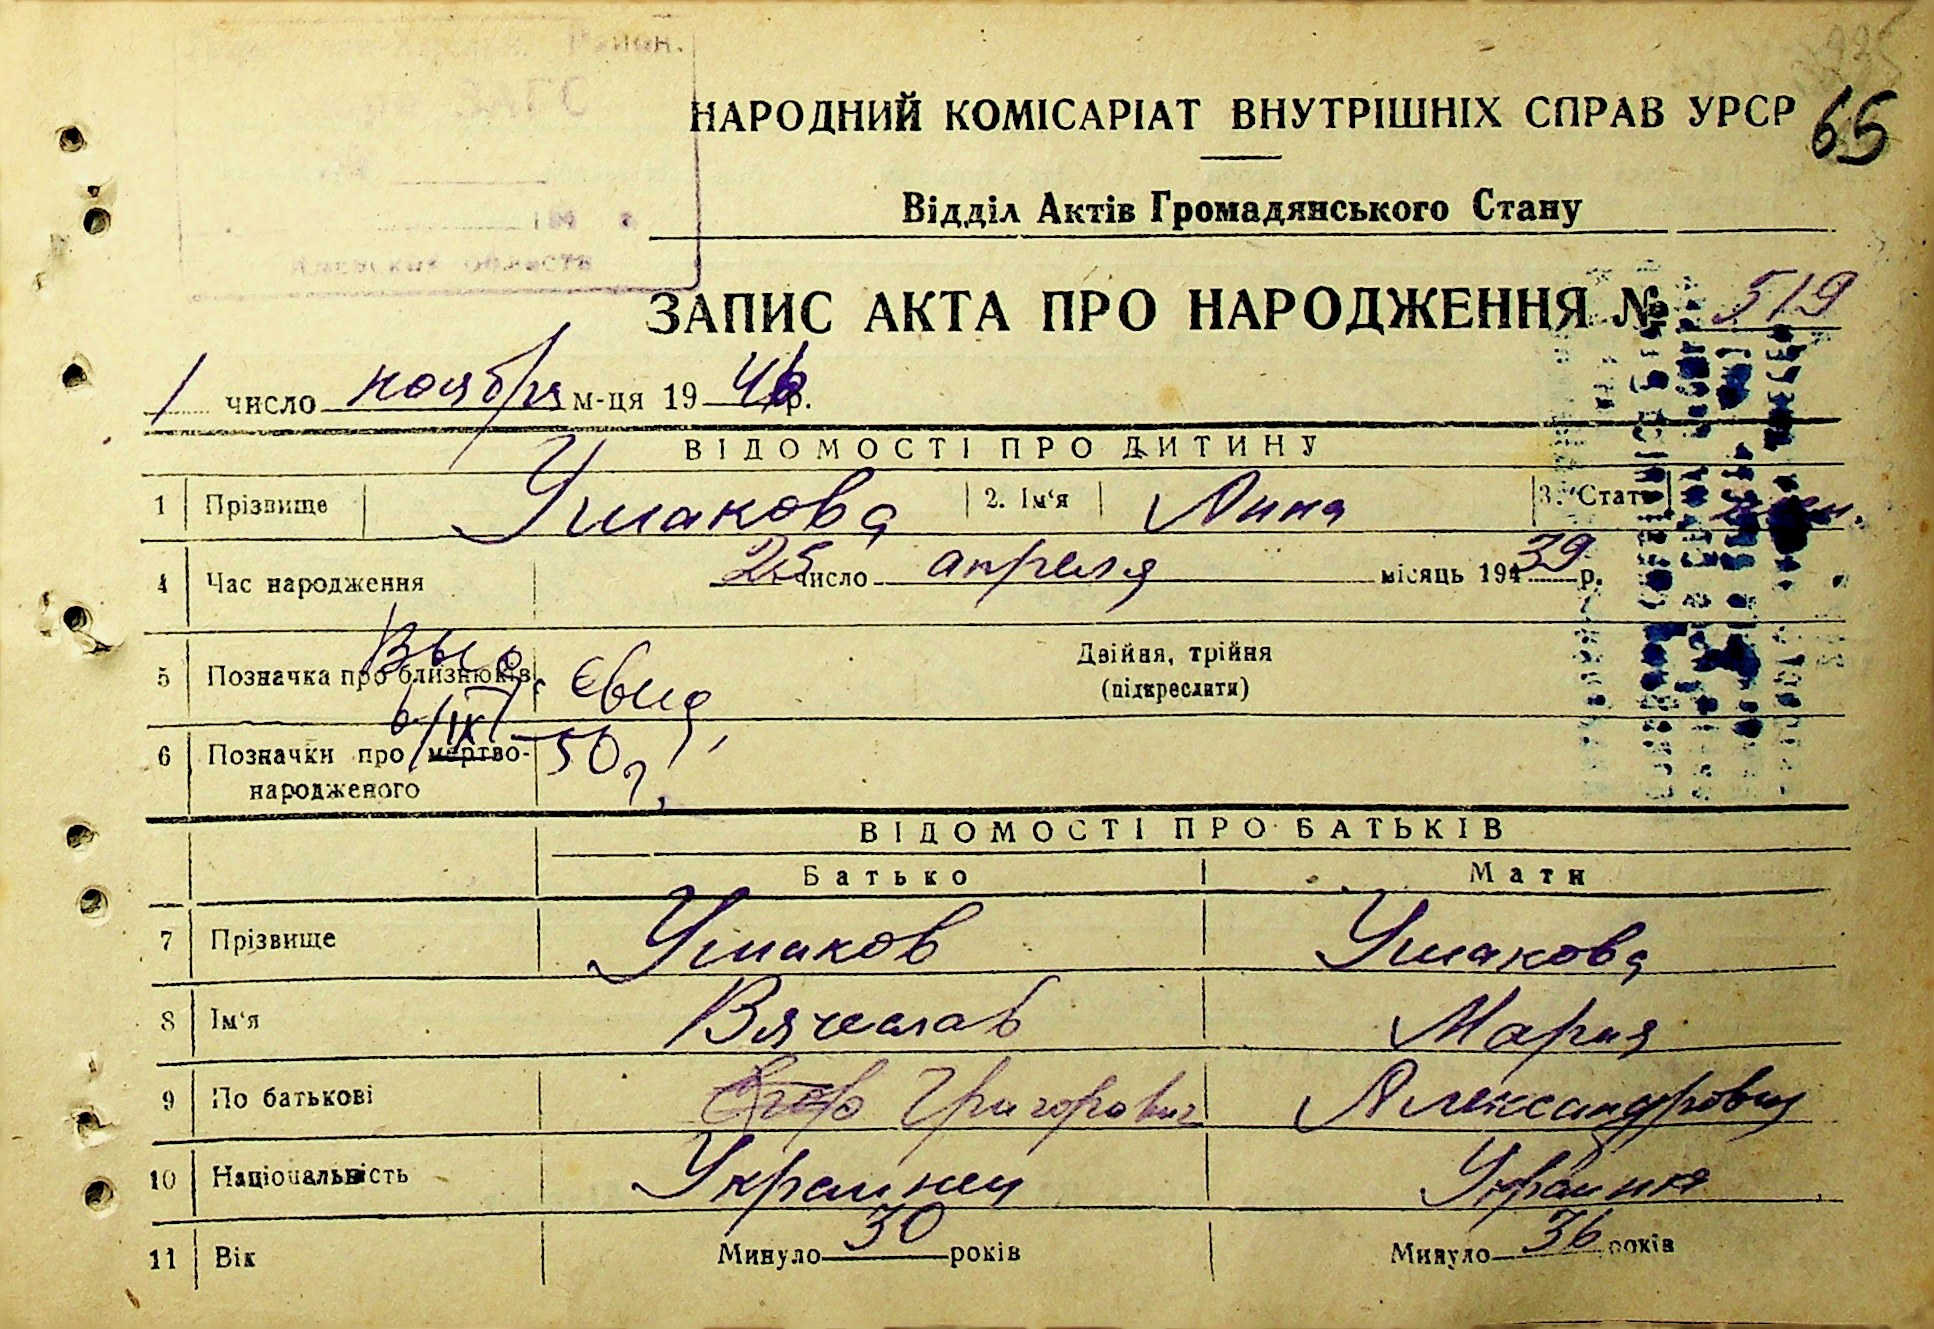 65
НАРОДНИЙ КОМІСАРІАТ ВНУТРІШНІХ СПРАВ УРСР
Відділ Актів Громадянського Стану
ЗАПИС АКТА ПРО НАРОДЖЕННЯ № 519
1 число ноября м-ця 1946 р.
ВІДОМОСТІ ПРО ДИТИНУ
1 Прізвище Ушакова 2. Ім'я Анна 3. Стать жен.
4 Час народження 25 число апреля місяць 194 39 р.
5 Позначка про близнюків Двійня, трійня
(підкреслити)
Выд. свид.
6/IX 50 г.
6 Позначки про мертво-
народженого
ВІДОМОСТІ ПРО БАТЬКІВ
Батько Мати
7 Прізвище Ушаков Ушакова
8 Ім'я Вячеслав Мария
9 По батькові Григорович Александровна
10 Національність Украинец Украинка
11 Вік Минуло 30 років Минуло 36 років